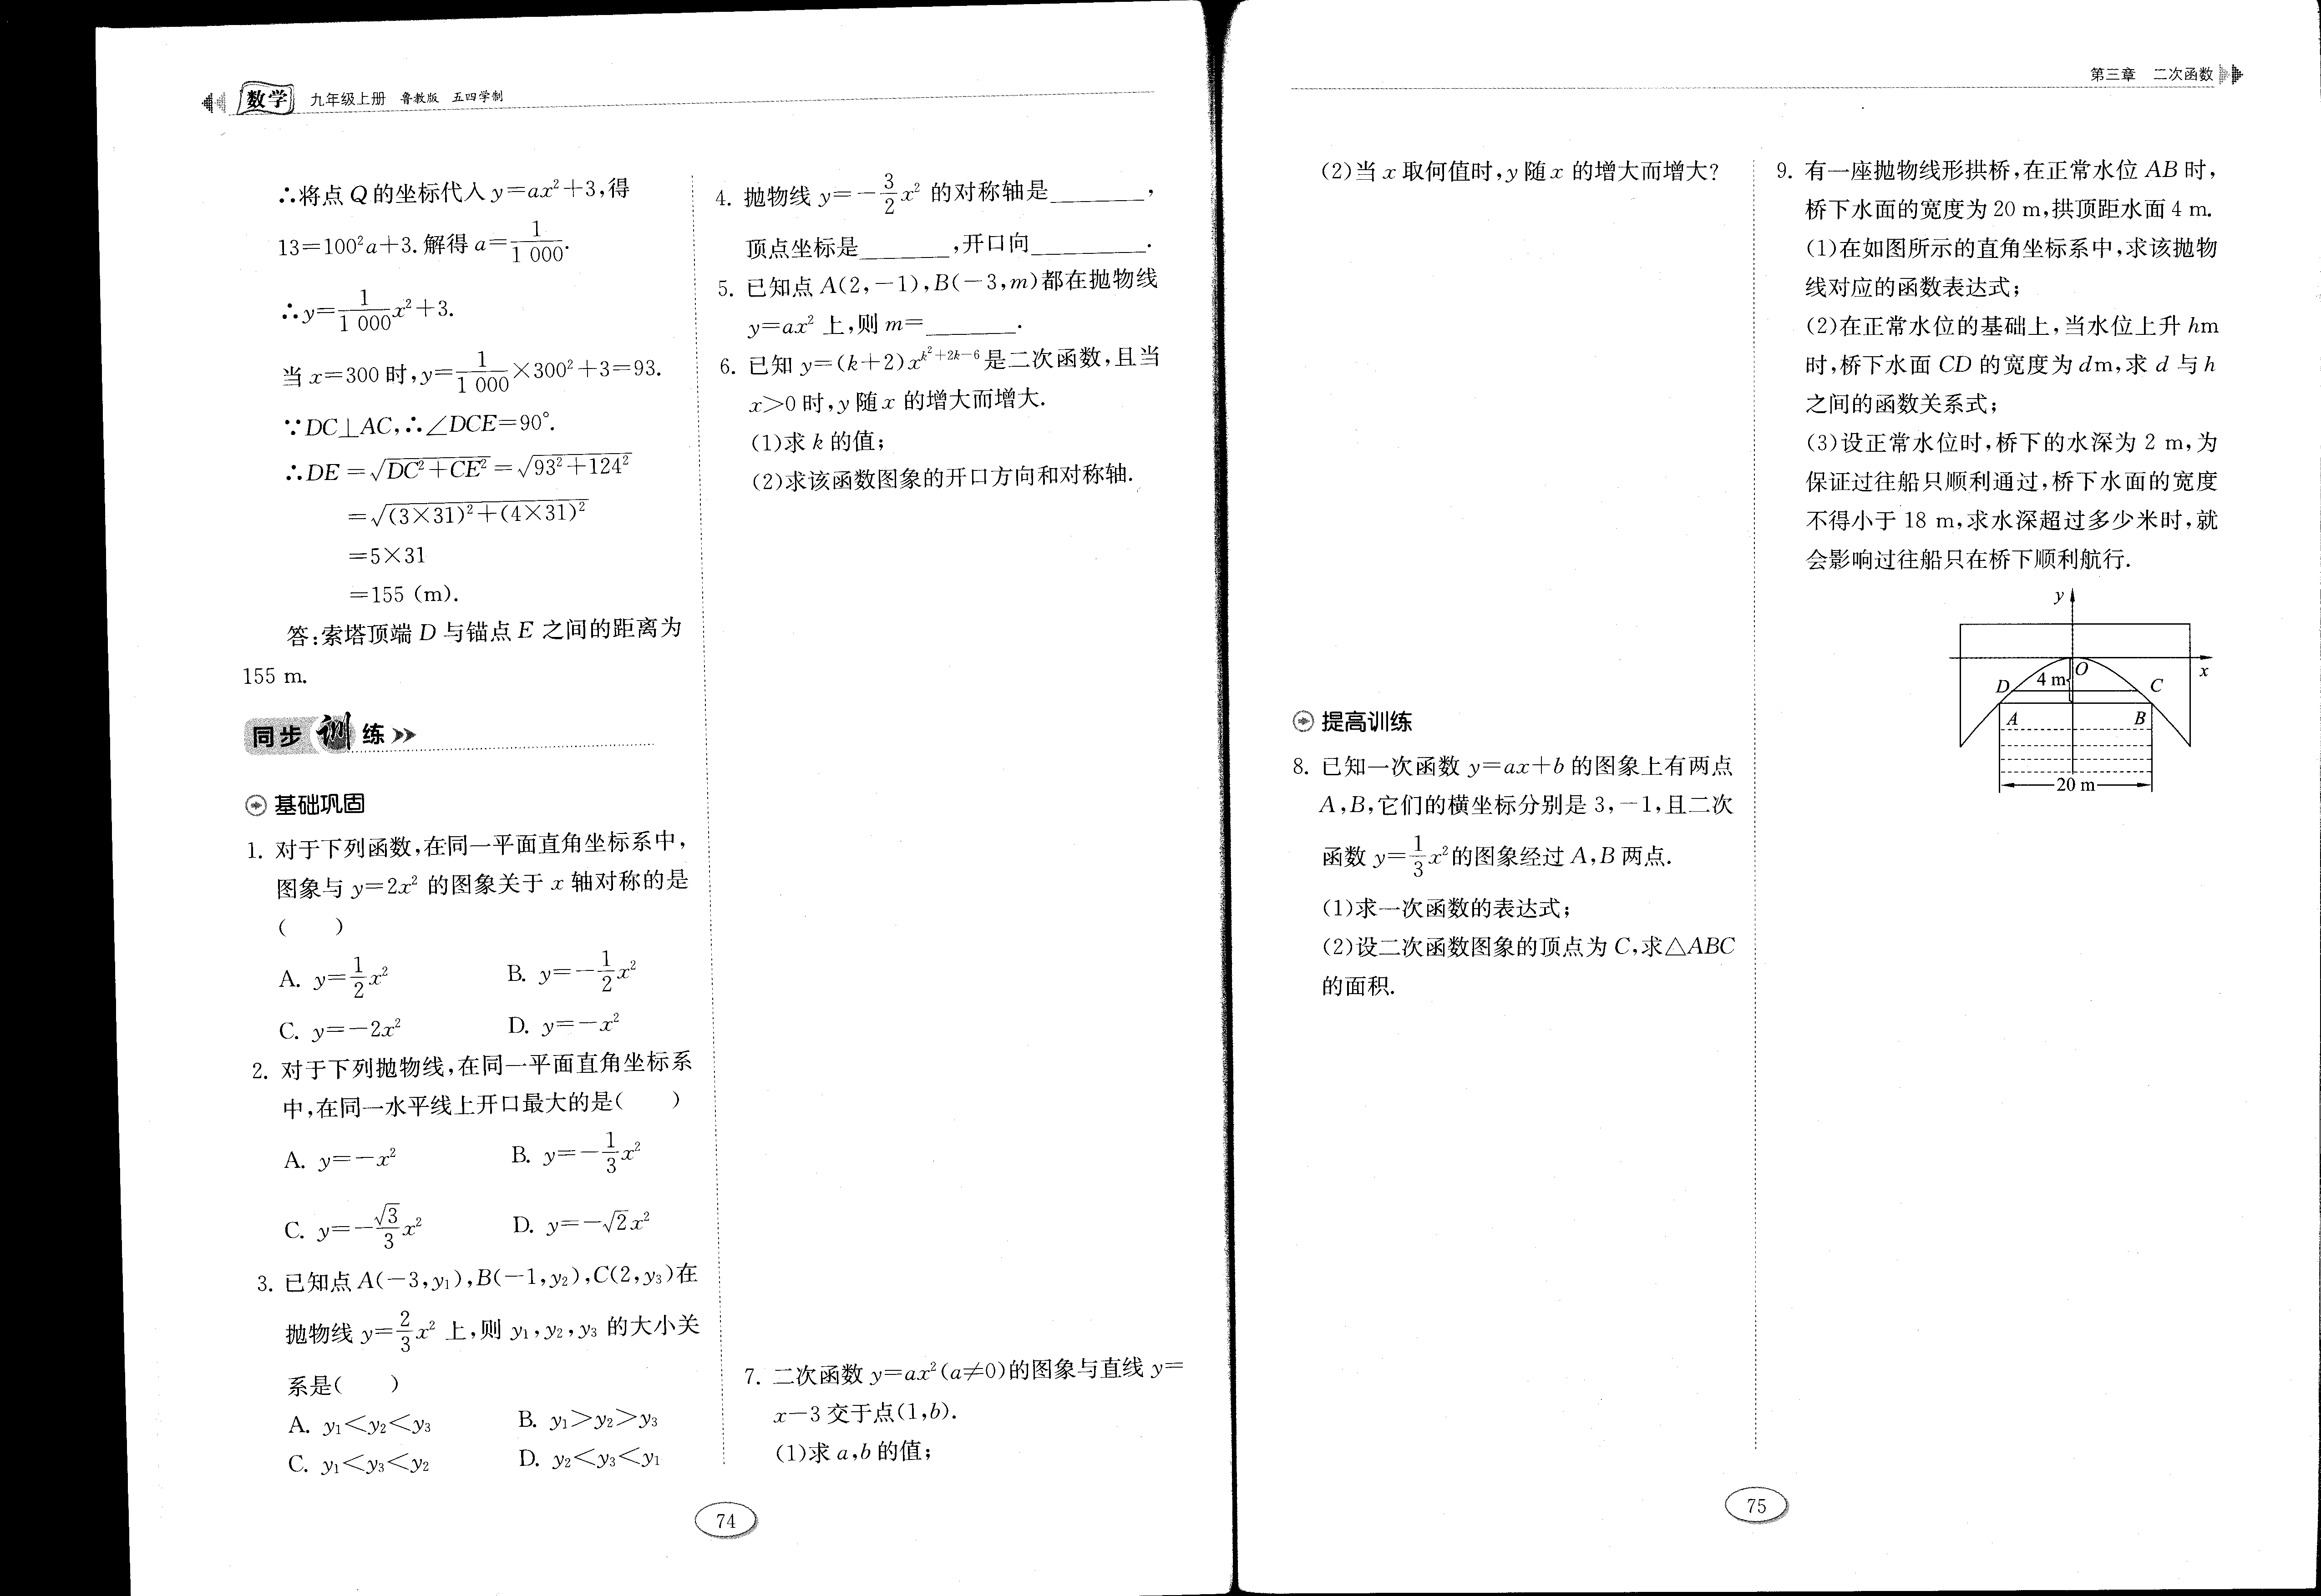 数学 九年级上册 鲁教版 五四学制
∴将点 Q 的坐标代入 y=ax²+3,得
13=100²a+3. 解得 a=1/1 000.
∴y=1/1 000x²+3.
当 x=300 时,y=1/1 000×300²+3=93.
∵DC⊥AC,∴∠DCE=90°.
∴DE=√(DC²+CE²)=√(93²+124²)
=√((3×31)²+(4×31)²)
=5×31
=155 (m).
答:索塔顶端 D 与锚点 E 之间的距离为
155 m.
同步训练
基础巩固
1. 对于下列函数,在同一平面直角坐标系中,
图象与 y=2x² 的图象关于 x 轴对称的是
(  )
A. y=1/2x² B. y=-1/2x²
C. y=-2x² D. y=-x²
2. 对于下列抛物线,在同一平面直角坐标系
中,在同一水平线上开口最大的是(  )
A. y=-x² B. y=-1/3x²
C. y=-√3/3x² D. y=-√2x²
3. 已知点 A(-3,y₁),B(-1,y₂),C(2,y₃)在
抛物线 y=2/3x² 上,则 y₁,y₂,y₃ 的大小关
系是(  )
A. y₁<y₂<y₃ B. y₁>y₂>y₃
C. y₁<y₃<y₂ D. y₂<y₃<y₁
4. 抛物线 y=-3/2x² 的对称轴是________,
顶点坐标是________,开口向__________.
5. 已知点 A(2,-1),B(-3,m)都在抛物线
y=ax² 上,则 m=________.
6. 已知 y=(k+2)x^(k²+2k-6)是二次函数,且当
x>0 时,y 随 x 的增大而增大.
(1)求 k 的值;
(2)求该函数图象的开口方向和对称轴.
7. 二次函数 y=ax²(a≠0)的图象与直线 y=
x-3 交于点(1,b).
(1)求 a,b 的值;
74
第三章 二次函数
(2)当 x 取何值时,y 随 x 的增大而增大?
提高训练
8. 已知一次函数 y=ax+b 的图象上有两点
A,B,它们的横坐标分别是 3,-1,且二次
函数 y=1/3x²的图象经过 A,B 两点.
(1)求一次函数的表达式;
(2)设二次函数图象的顶点为 C,求△ABC
的面积.
9. 有一座抛物线形拱桥,在正常水位 AB 时,
桥下水面的宽度为 20 m,拱顶距水面 4 m.
(1)在如图所示的直角坐标系中,求该抛物
线对应的函数表达式;
(2)在正常水位的基础上,当水位上升 hm
时,桥下水面 CD 的宽度为 dm,求 d 与 h
之间的函数关系式;
(3)设正常水位时,桥下的水深为 2 m,为
保证过往船只顺利通过,桥下水面的宽度
不得小于 18 m,求水深超过多少米时,就
会影响过往船只在桥下顺利航行.
y
O
x
D 4 m C
A B
20 m
75